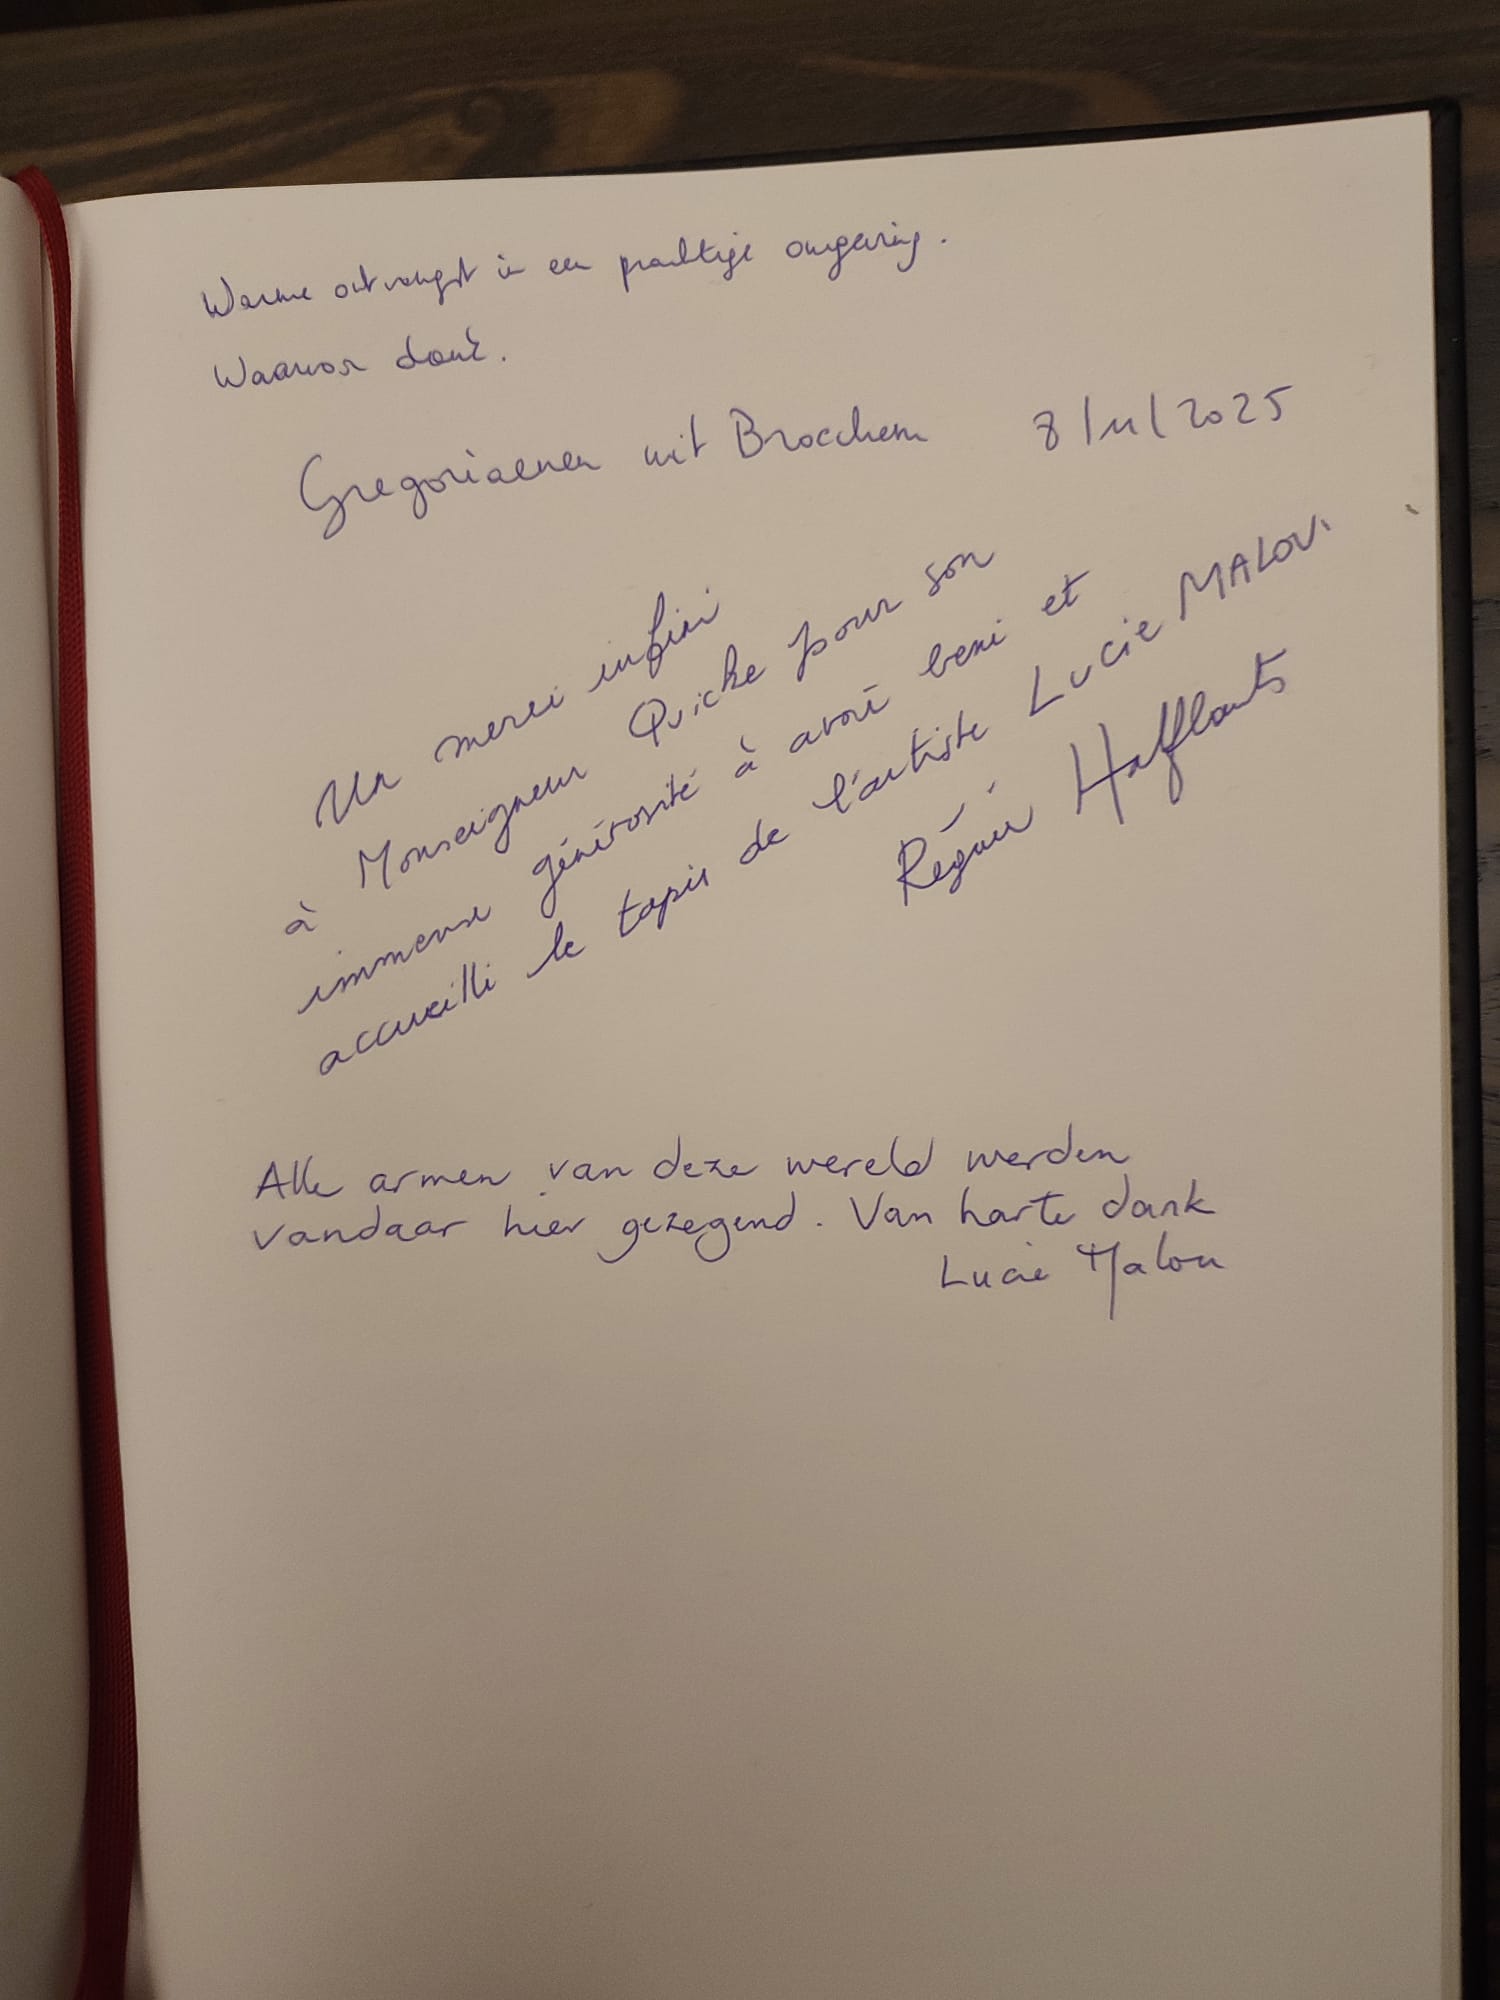 Warme ontvangst in een prachtige omgeving.
Waarvoor dank.
Gregorianen uit Broechem 8/11/2025
Un merci infini
à Monseigneur Quicke pour son
immense générosité à avoir beni et
accueilli le tapis de l'artiste Lucie MALOU.
Régnier Hafflants
Alle armen van deze wereld werden
vandaar hier gezegend. Van harte dank
Lucie Malou